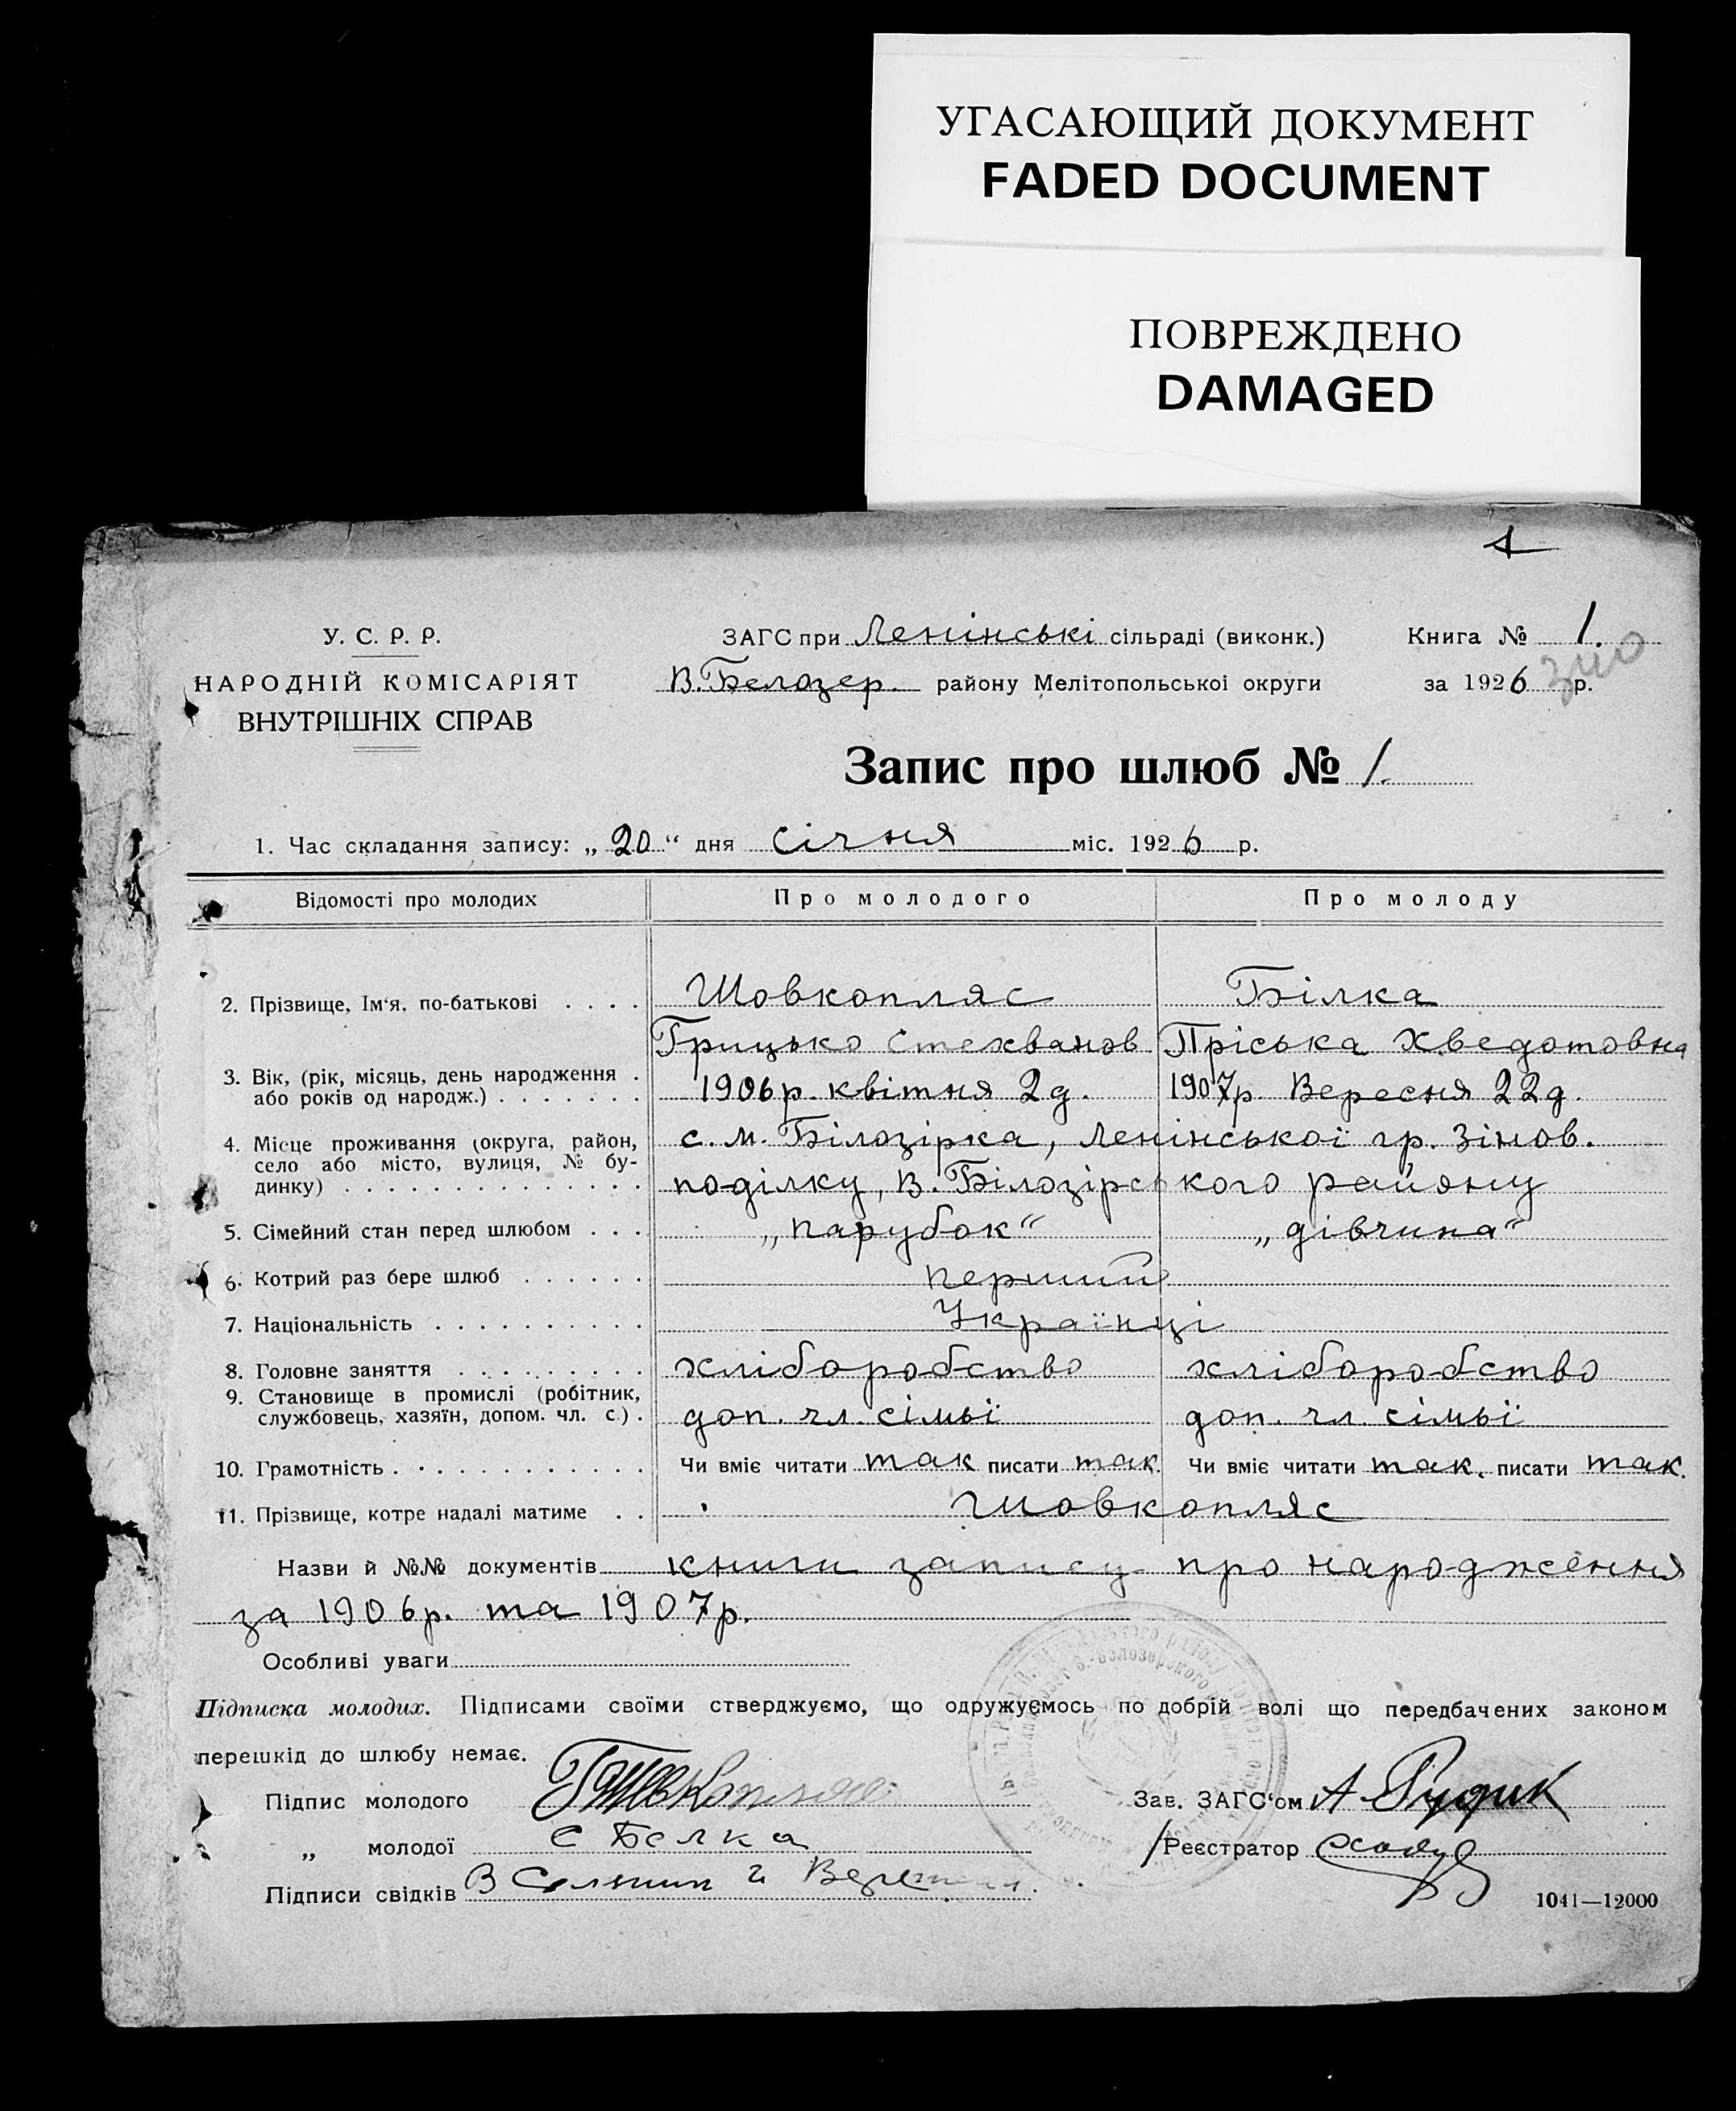 УГАСАЮЩИЙ ДОКУМЕНТ
FADED DOCUMENT
ПОВРЕЖДЕНО
DAMAGED
1
У. С. Р. Р.
НАРОДНІЙ КОМІСАРІЯТ
ВНУТРІШНІХ СПРАВ
ЗАГС при Ленінські сільраді (виконк.)
В. Белозер. району Мелітопольської округи
Книга № 1.
за 1926 р.
Запис про шлюб № 1.
1. Час складання запису: „20“ дня Січня міс. 1926 р.
Відомості про молодих Про молодого Про молоду
2. Прізвище, Ім'я, по-батькові . . . . Шовкопляс Білка
Грицько Стехванов Пріська Хведотовна
3. Вік, (рік, місяць, день народження . 1906р. квітня 2д. 1907р. Вересня 22д.
або років од народж.) . . . . . . .
4. Місце проживання (округа, район, с.м. Білозірка, Ленінської гр. Зінов.
село або місто, вулиця, № бу-
динку) . . . . . . . . . . . . . . поділку, В. Білозірського району
5. Сімейний стан перед шлюбом . . . „парубок“ „дівчина“
6. Котрий раз бере шлюб . . . . . . перший
7. Національність . . . . . . . . . . Українці
8. Головне заняття . . . . . . . . . хліборобство хліборобство
9. Становище в промислі (робітник,
службовець, хазяїн, допом. чл. с.) . доп. чл. сімьї доп. чл. сімьї
10. Грамотність . . . . . . . . . . . . Чи вміє читати так писати так. Чи вміє читати так. писати так.
11. Прізвище, котре надалі матиме . . Шовкопляс
Назви й №№ документів книги запису про народження
за 1906р. та 1907р.
Особливі уваги
Підписка молодих. Підписами своїми стверджуємо, що одружуємось по добрій волі що передбачених законом
перешкід до шлюбу немає.
Підпис молодого Зав. ЗАГС'ом А Рудик
„ молодої Є Белка Реєстратор
Підписи свідків В
1041—12000